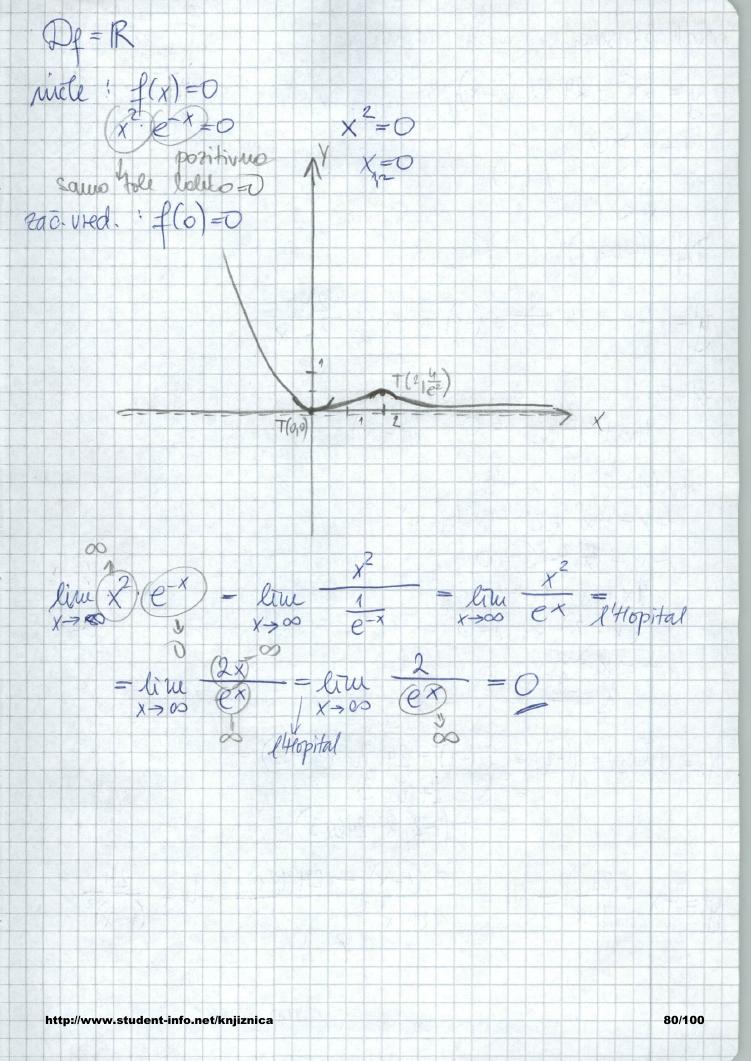 Df = ℝ
ničle : f(x)=0
x²·e⁻ˣ=0
x²=0
x₁,₂=0
pozitivno
samo tole lahko=0
zač. vred. : f(0)=0
y
1
T(2, 4/e²)
T(0,0)
1 2
x
∞
lim x→∞ x² · e⁻ˣ = lim x→∞ x² / (1/e⁻ˣ) = lim x→∞ x²/eˣ = l'Hopital
0
= lim x→∞ 2x/eˣ = lim x→∞ 2/eˣ = 0
∞
∞ l'Hopital ∞
http://www.student-info.net/knjiznica 80/100